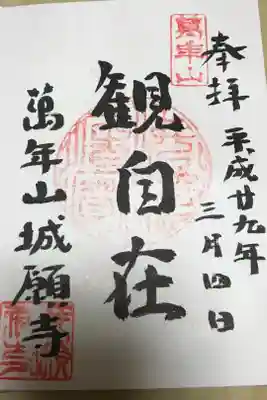 奉拝
平成廿九年
三月四日
萬年山
観自在
萬年山城願寺